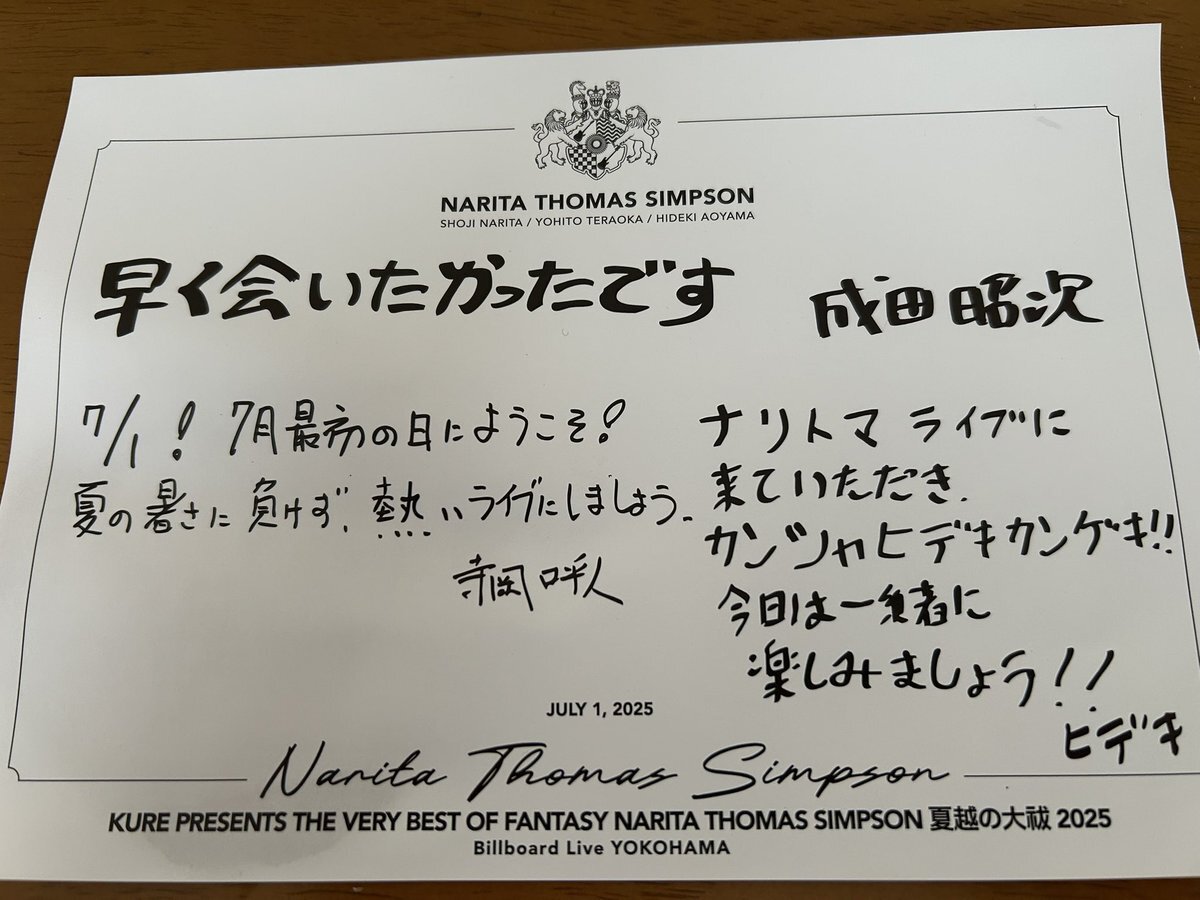 NARITA THOMAS SIMPSON
SHOJI NARITA / YOHITO TERAOKA / HIDEKI AOYAMA
早く会いたかったです 成田昭次
7/1! 7月最初の日にようこそ!
夏の暑さに負けず、熱いライブにしましょう。
寺岡呼人
ナリトマ ライブに
来ていただき、
カンシャヒデキカンゲキ!!
今日は一緒に
楽しみましょう!!
ヒデキ
JULY 1, 2025
Narita Thomas Simpson
KURE PRESENTS THE VERY BEST OF FANTASY NARITA THOMAS SIMPSON 夏越の大祓 2025
Billboard Live YOKOHAMA